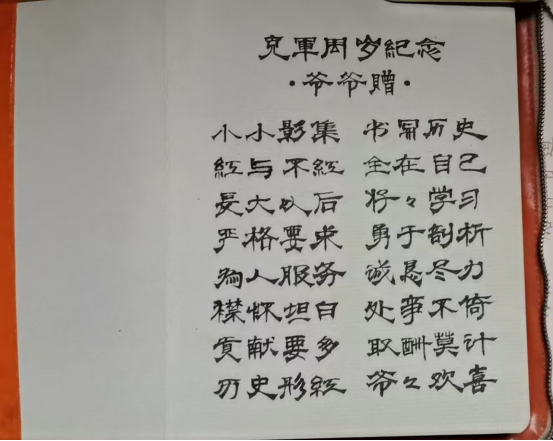 克軍周岁紀念
·爷爷贈·
小小影集 书写历史
紅与不紅 全在自己
長大以后 好々学习
严格要求 勇于剖析
為人服务 诚恳尽力
襟怀坦白 处事不倚
贡献要多 取酬莫计
历史形紅 爷々欢喜